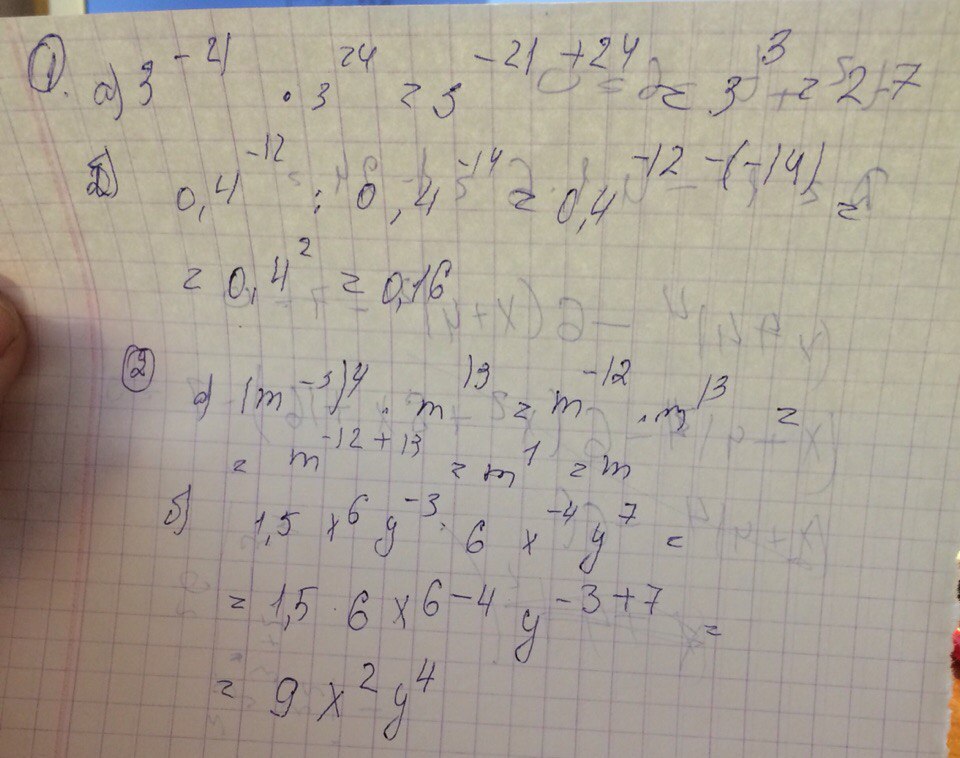 1. а) 3^-21 · 3^24 = 3^-21+24 = 3^3 = 27
б) 0,4^-12 : 0,4^-14 = 0,4^-12-(-14) =
= 0,4^2 = 0,16
2 а) (m^-3)^4 · m^13 = m^-12 · m^13 =
= m^-12+13 = m^1 = m
б) 1,5 x^6 y^-3 · 6 x^-4 y^7 =
= 1,5 · 6 x^6-4 y^-3+7 =
= 9 x^2 y^4